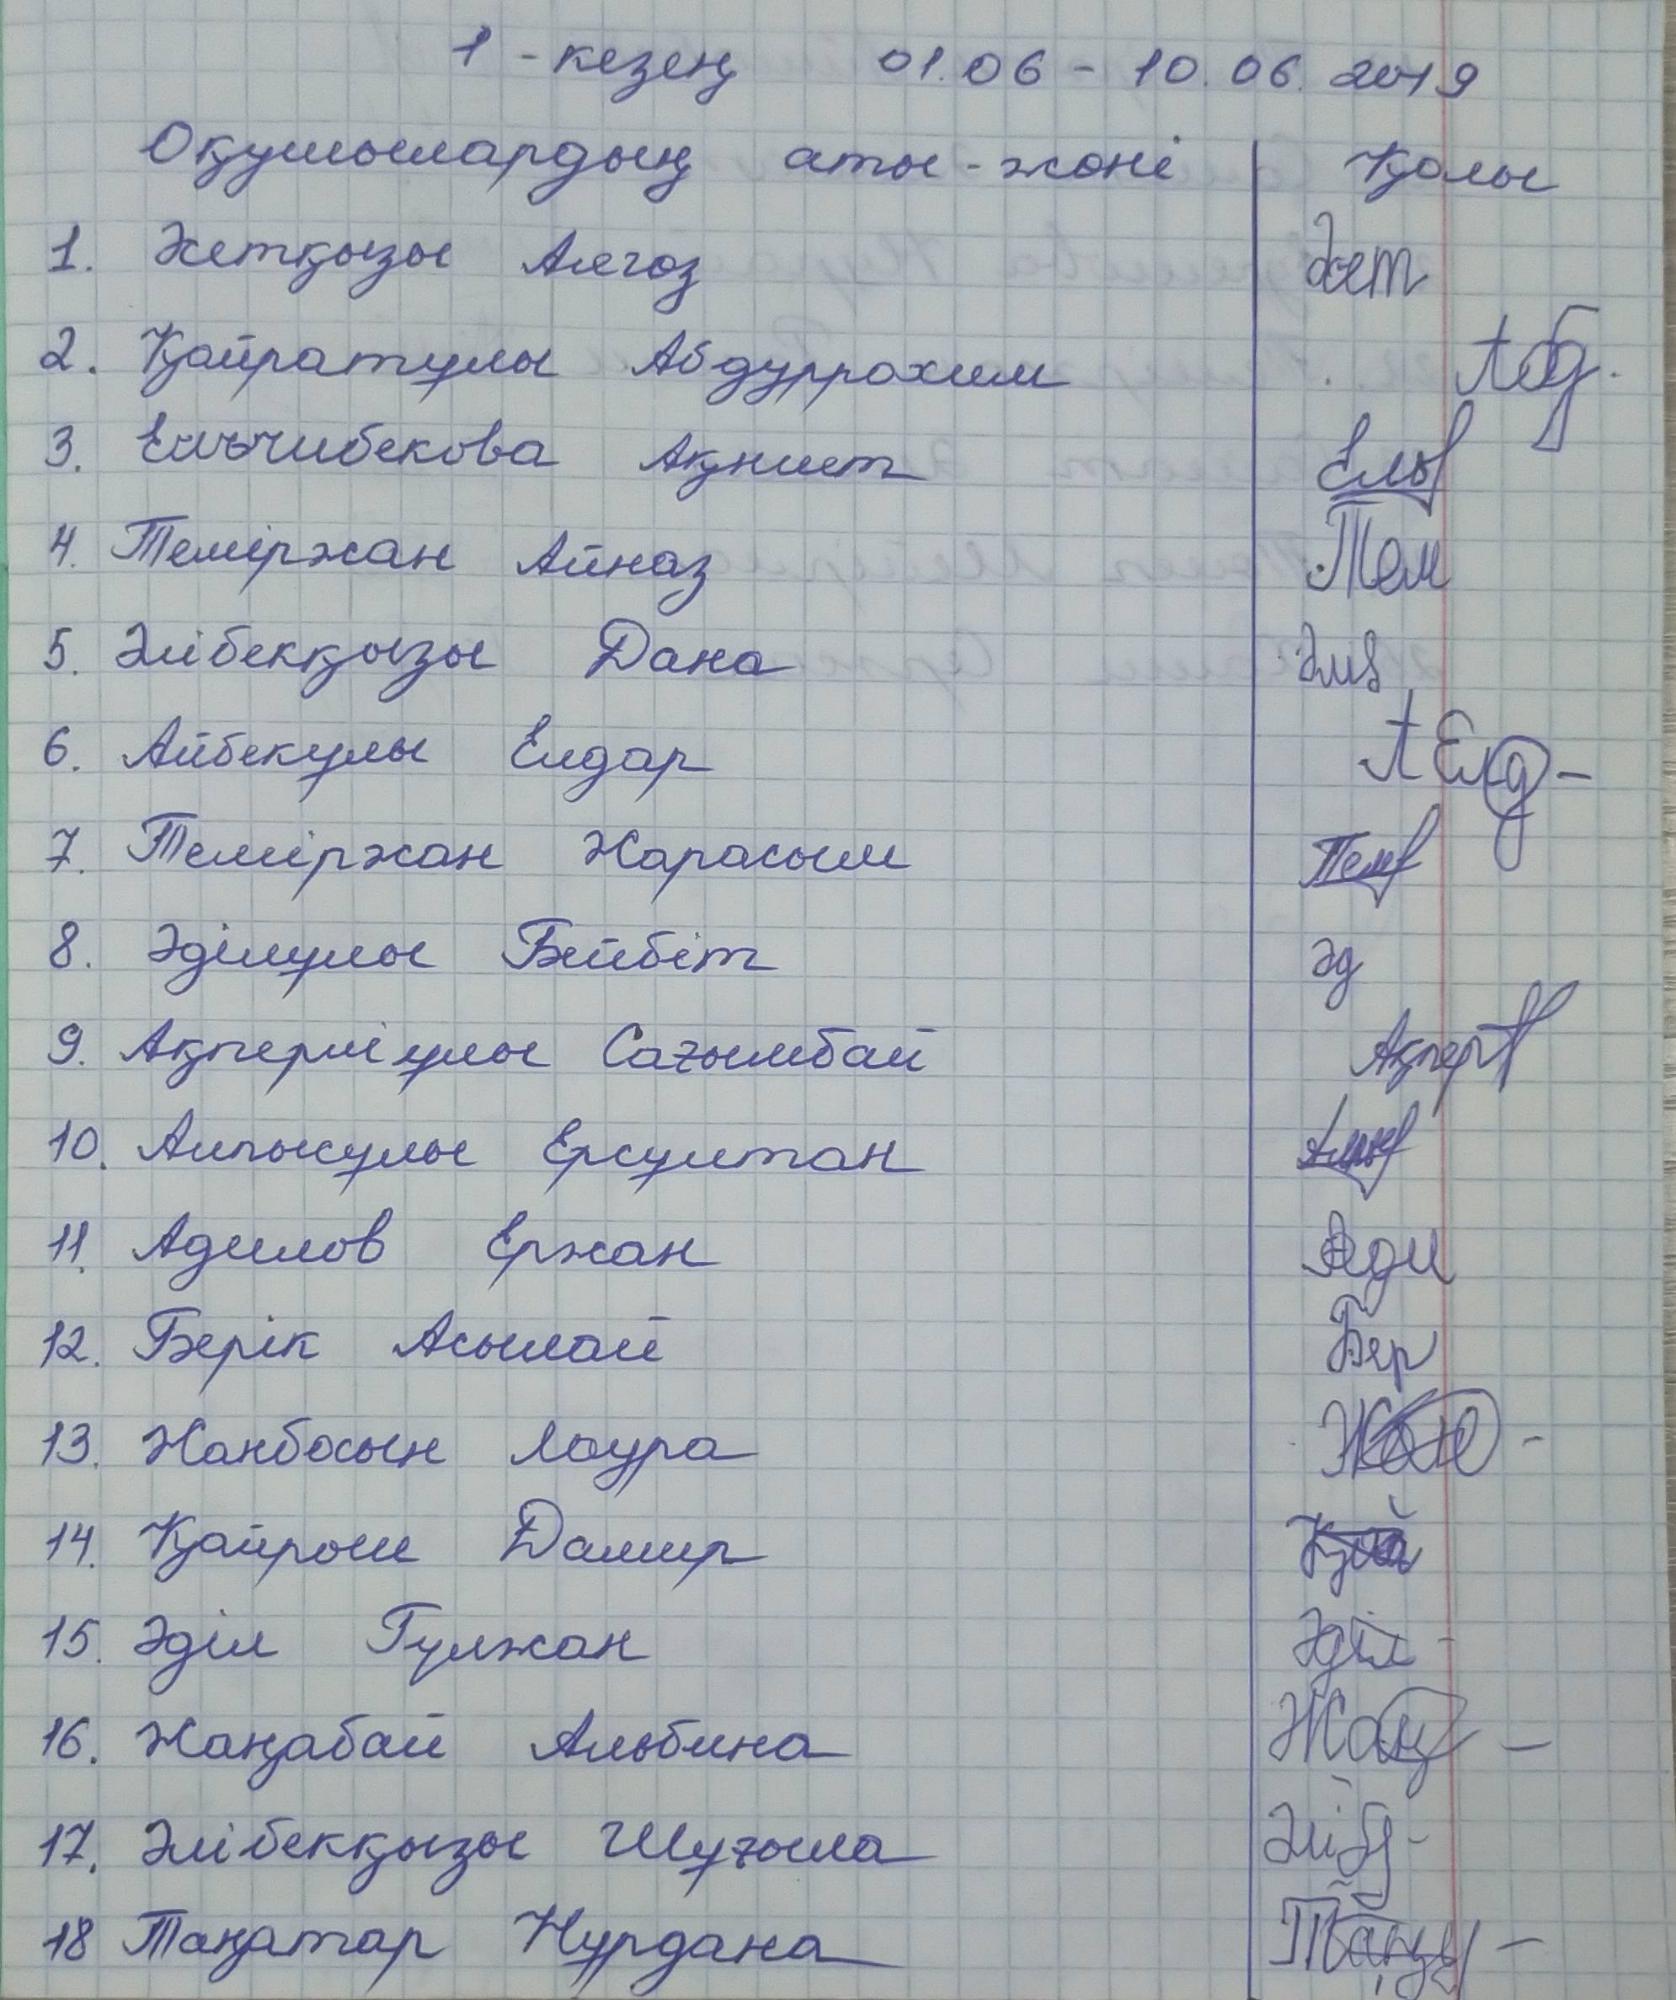 1 - кезең 01.06 - 10.06. 2019
Оқушылардың аты - жөні Қолы
1. Жетқызы Аягөз
2. Қайратұлы Абдуррахим Абд.
3. Елчибекова Ақниет
4. Теміржан Айназ Тем
5. Әлібекқызы Дана
6. Айбекұлы Елдар А Елд -
7. Теміржан Жарасым Тем
8. Әділұлы Бейбіт Әд
9. Ақперліұлы Сағымбай Ақпер
10. Алпысұлы Ерсұлтан
11. Адилов Ержан Ади
12. Берік Асылай Бер
13. Жанбосын Лаура Жан -
14. Қайрош Дамир Қай
15. Әділ Гүлжан Әділ -
16. Жаңабай Альбина Жаң -
17. Әлібекқызы Шұғыла
18 Таңатар Нұрдана